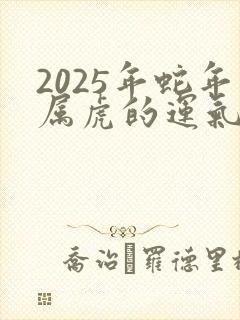 2025年蛇年
属虎的運氣
喬治 羅德里